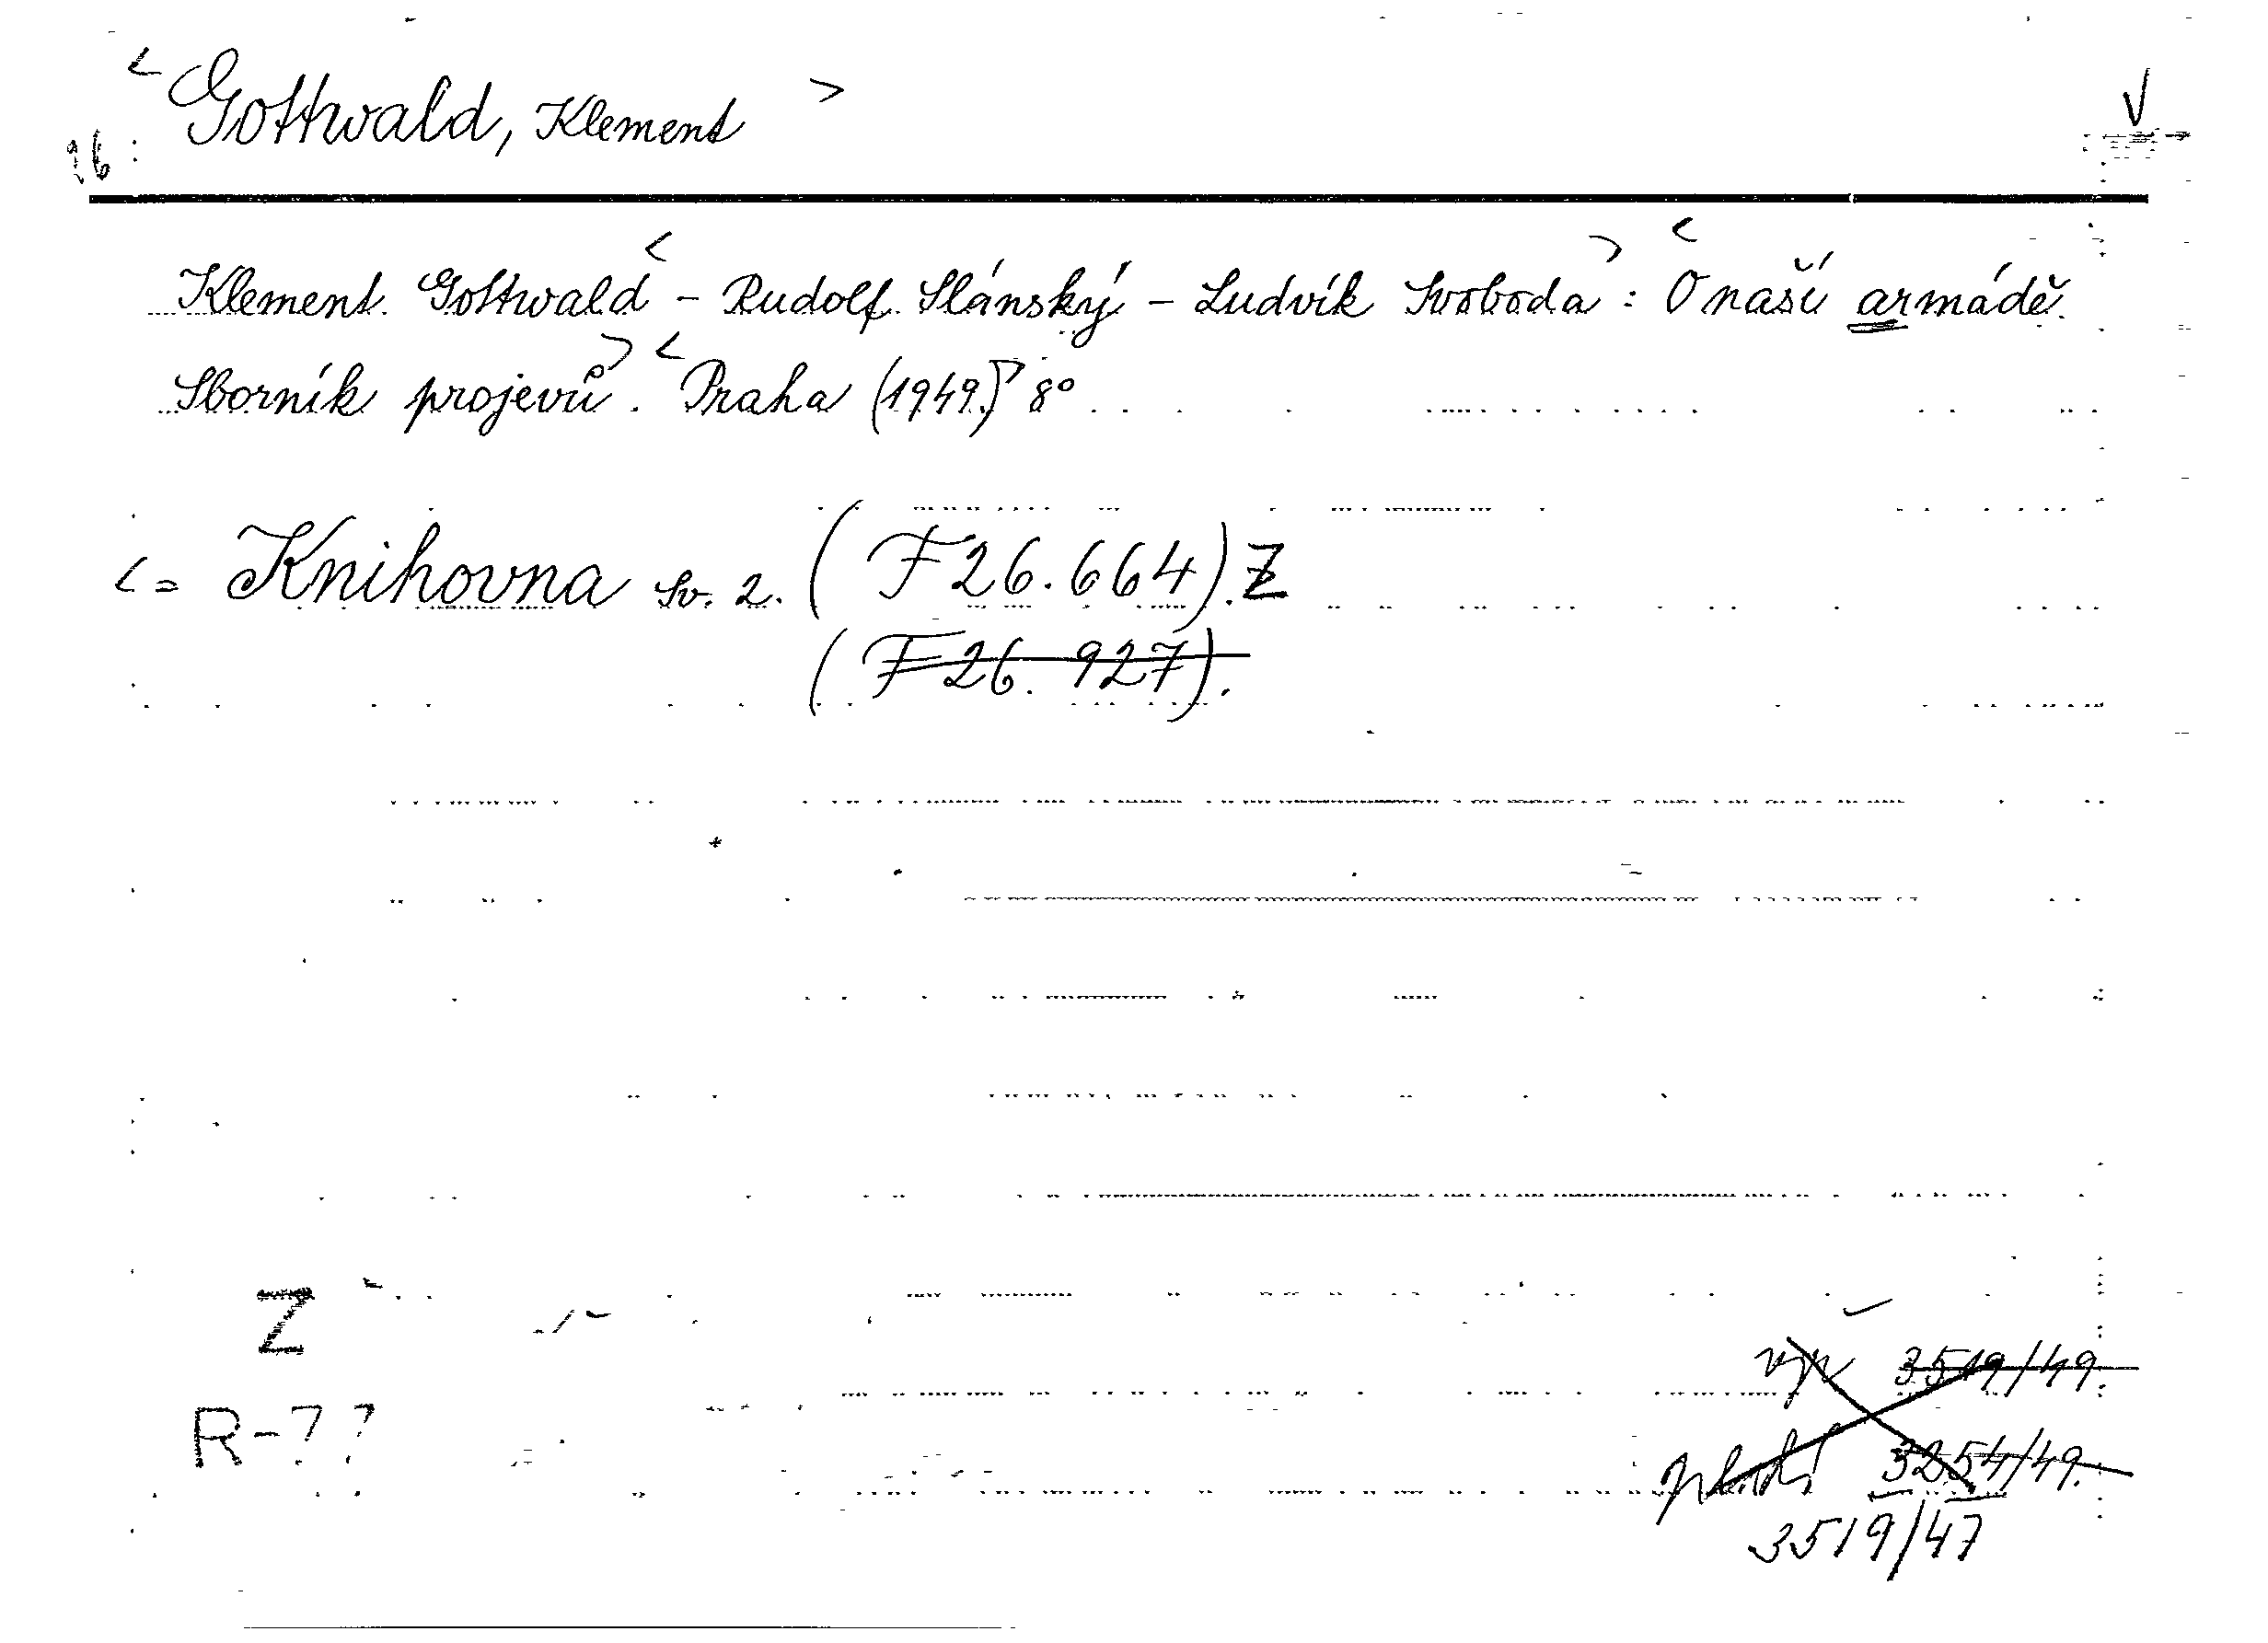 < Gottwald, Klement >
V
Klement Gottwald < – Rudolf Slánský – Ludvík Svoboda > : < O naší armádě.
Sborník projevů > . < Praha (1949.) > 8°
< = Knihovna sv. 2. (F 26.664). Z
(F 26. 927).
Z
R-??
3519/49.
platí 3254/49.
3519/47